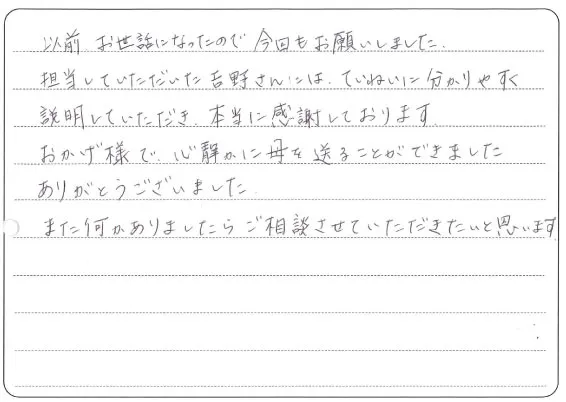 以前、お世話になったので今回もお願いしました。
担当していただいた吉野さんには、ていねいに分かりやすく
説明していただき、本当に感謝しております。
おかげ様で、心静かに母を送ることができました
ありがとうございました。
また何かありましたらご相談させていただきたいと思います